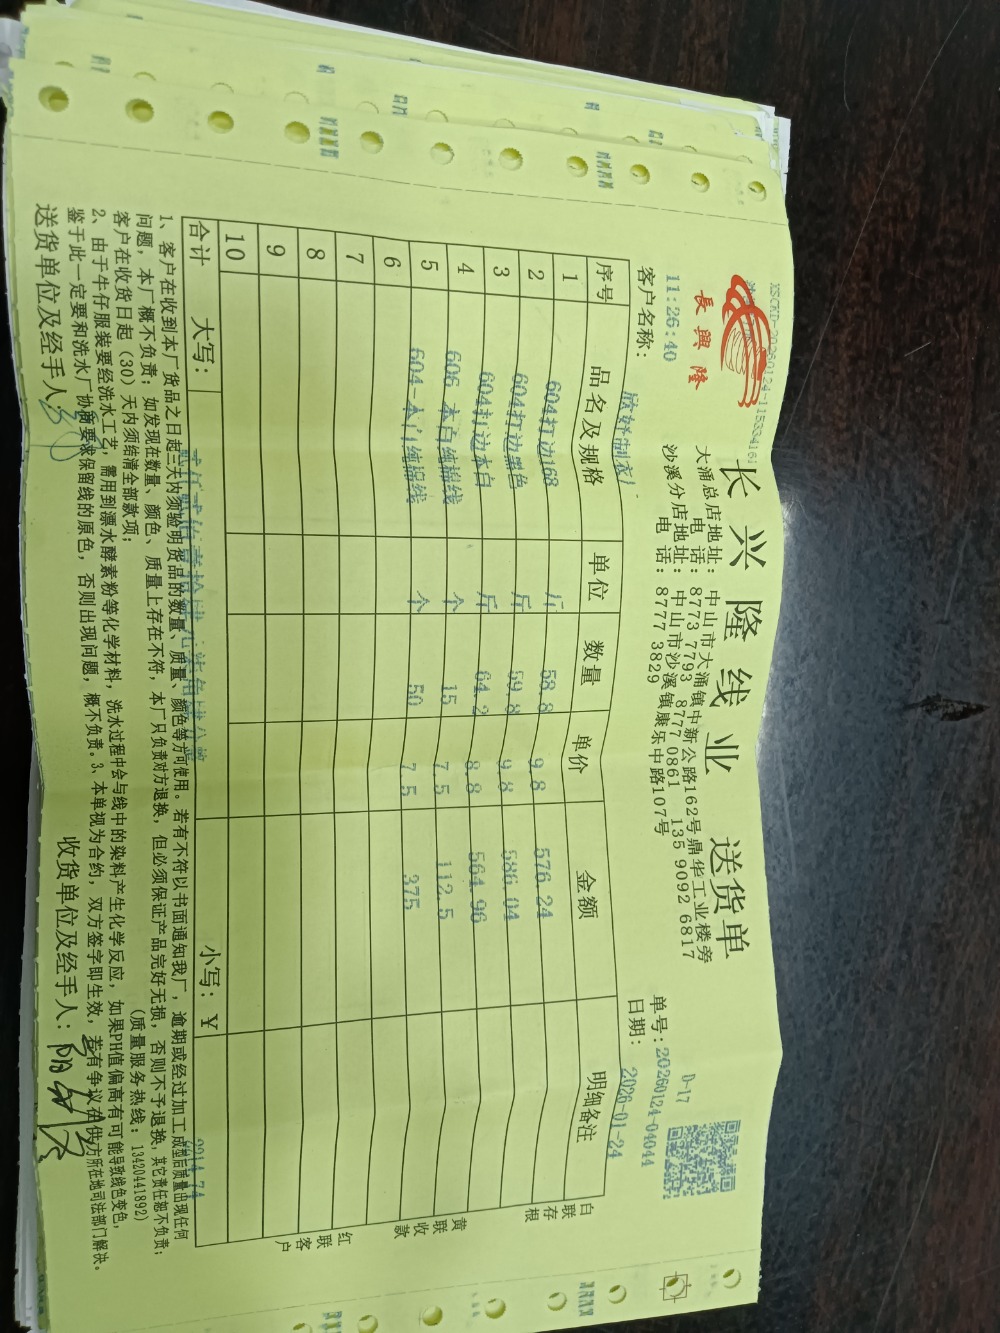 長興隆
长兴隆线业 送货单
大涌总店地址：中山市大涌镇中新公路162号鼎华工业楼旁
电话：8773 7793 8777 0861 135 9092 6817
沙溪分店地址：中山市沙溪镇康乐中路107号
电话：8777 3829
D-17
单号：20260124-04044
日期：2026-01-24
11:26:40
客户名称：欣妤制衣厂
序号 品名及规格 单位 数量 单价 金额 明细备注
1 604打边168 斤 58.8 9.8 576.24
2 604打边黑色 斤 59.8 9.8 586.04
3 604打边本白 斤 64.2 8.8 564.96
4 606 本白纯棉线 个 15 7.5 112.5
5 604-本白纯棉线 个 50 7.5 375
6
7
8
9
10
合计 大写： 小写：￥ 2214.74
白联存根
黄联收款
红联客户
1、客户在收到本厂货品之日起三天内须验明货品的数量、质量、颜色等方可使用。若有不符以书面通知我厂，逾期或经过加工成型后质量出现任何
问题，本厂概不负责；如发现在数量、颜色、质量上存在不符，本厂只负责对方退换，但必须保证产品完好无损，否则不予退换，其它责任恕不负责；
客户在收货日起（30）天内须结清全部款项；（质量服务热线：13420441892）
2、由于牛仔服装要经洗水工艺，需用到漂水酵素粉等化学材料，洗水过程中会与线中的染料产生化学反应，如果PH值偏高有可能导致线色变色，
鉴于此一定要和洗水厂协商要求保留线的原色，否则出现问题，概不负责。3、本单视为合约，双方签字即生效，若有争议在供方所在地司法部门解决。
送货单位及经手人： 收货单位及经手人：